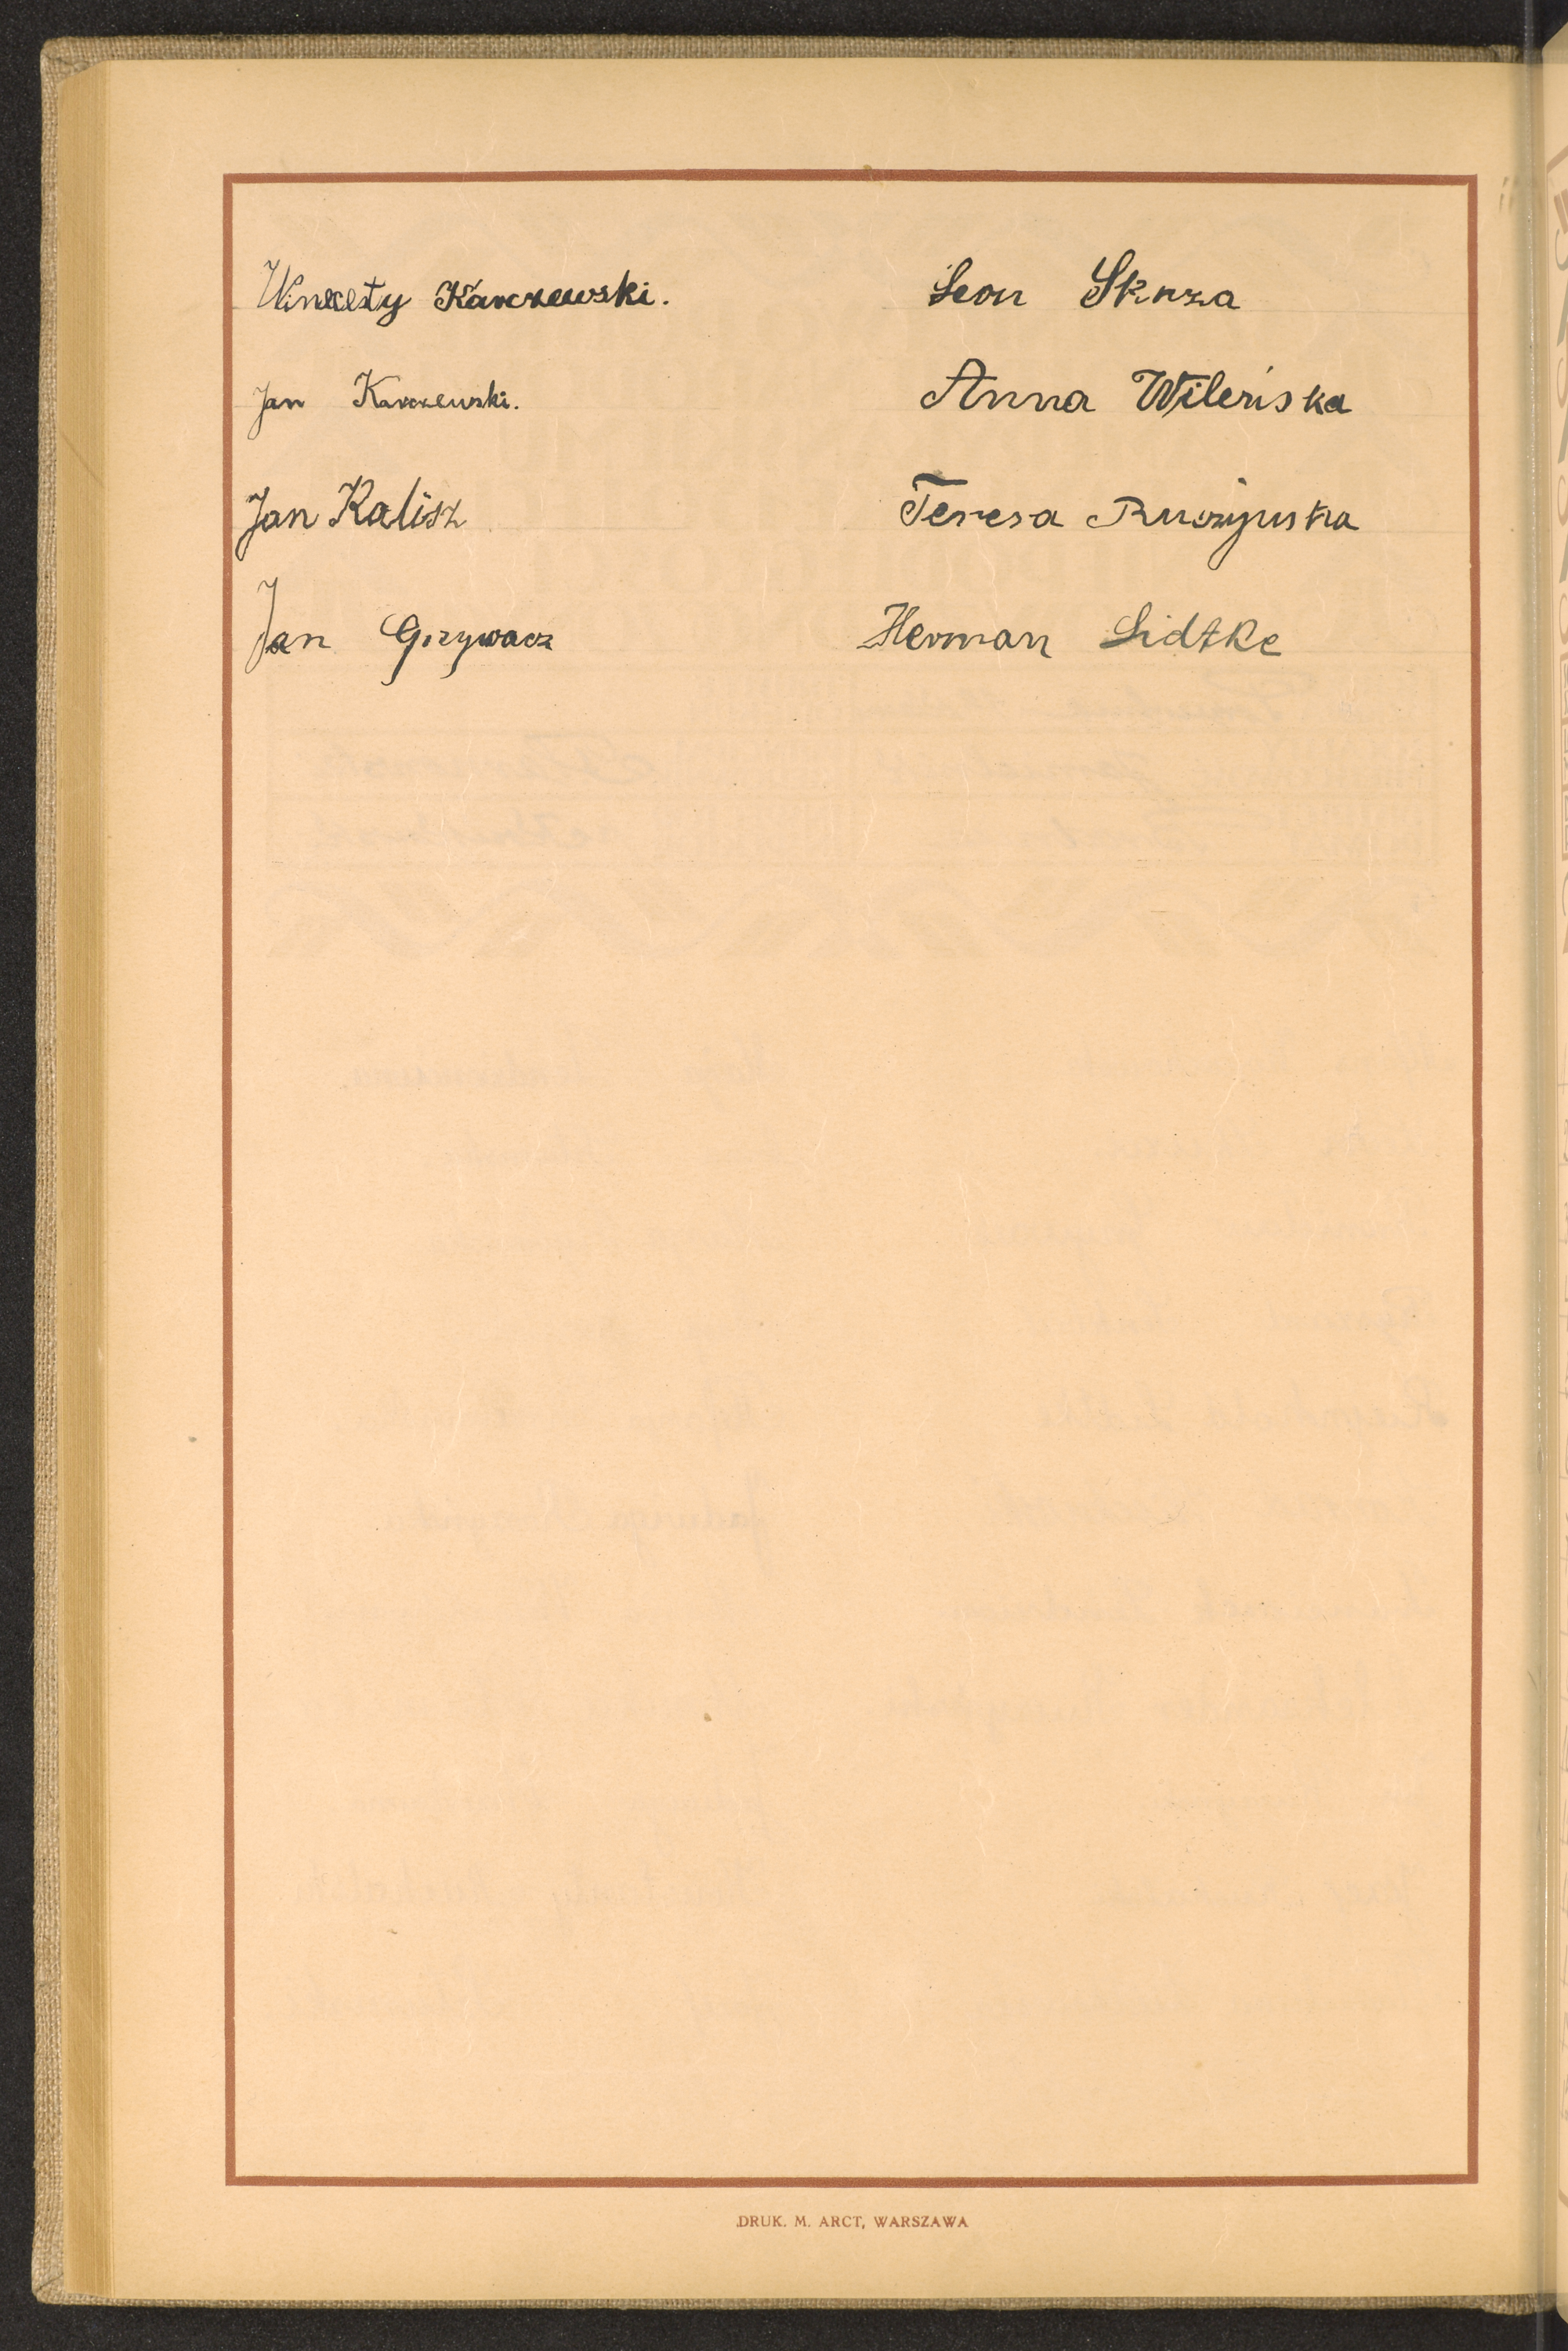 Wincesty Karczewski.
Jan Karczewski.
Jan Kalisz
Jan Grzywacz
Leon Skrza
Anna Wileńska
Teresa
Herman Lidtke
DRUK. M. ARCT, WARSZAWA